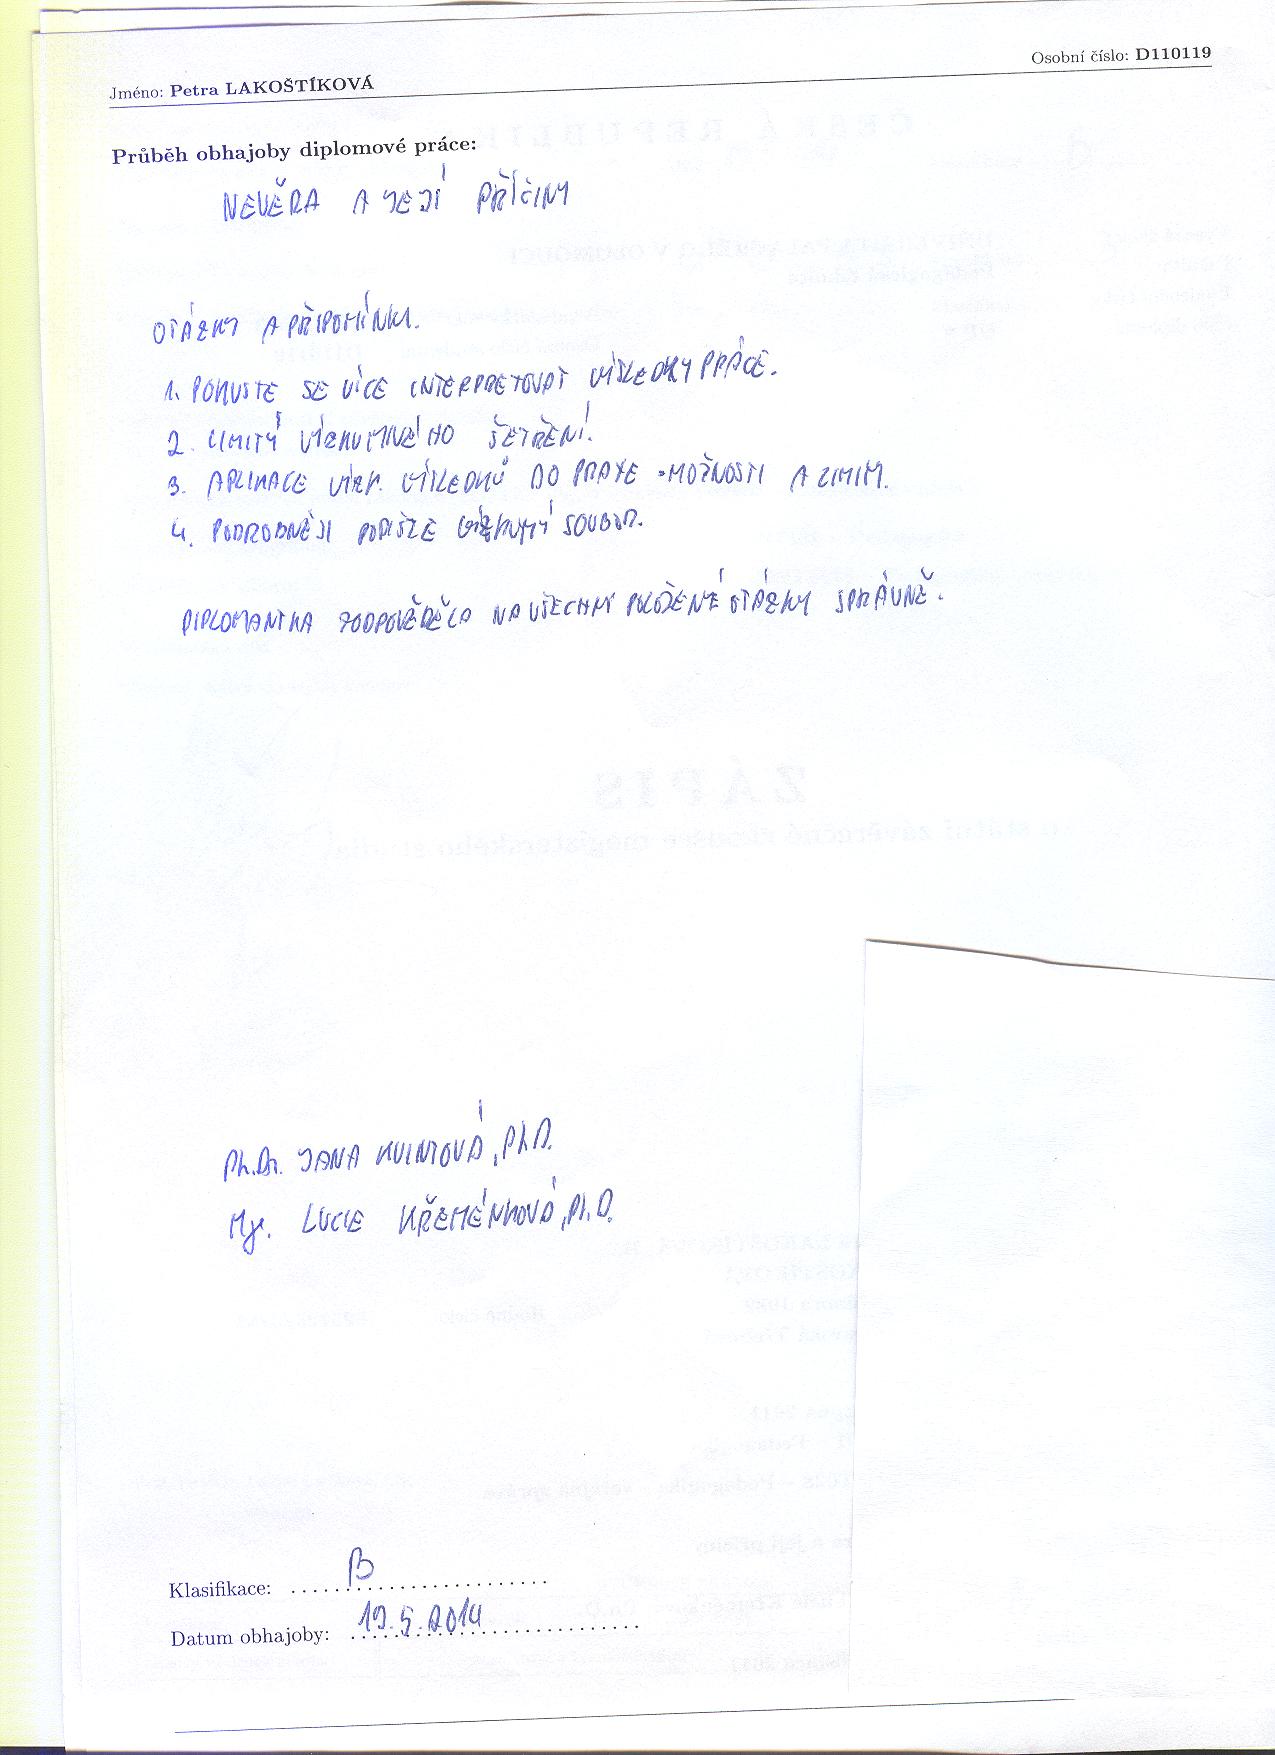 Jméno: Petra LAKOŠTÍKOVÁ
Osobní číslo: D110119
Průběh obhajoby diplomové práce:
NEVĚRA A JEJÍ PŘÍČINY
OTÁZKY A PŘIPOMÍNKY.
1. POKUSTE SE VÍCE INTERPRETOVAT VÝSLEDKY PRÁCE.
2. LIMITY VÝZKUMNÉHO ŠETŘENÍ.
3. APLIKACE VÝZK. VÝSLEDKŮ DO PRAXE - MOŽNOSTI A LIMITY.
4. PODROBNĚJI POPIŠTE VÝZKUMNÝ SOUBOR.
DIPLOMANTKA ZODPOVĚDĚLA NA VŠECHNY POLOŽENÉ OTÁZKY SPRÁVNĚ.
Ph.Dr. JANA KVINTOVÁ, Ph.D.
Mgr. LUCIE KŘEMÉNKOVÁ, Ph.D.
Klasifikace: B
Datum obhajoby: 19.5.2014